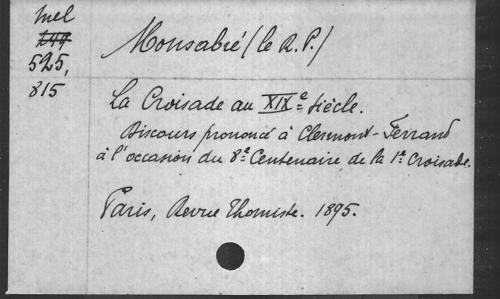 Mel
249
525,
815
Monsabré (le R.P.)
La Croisade au XIXe Siècle.
Discours prononcé à Clermont-Ferrand
à l'occasion du 8e Centenaire de la 1e Croisade.
Paris, Revue Thomiste. 1895.